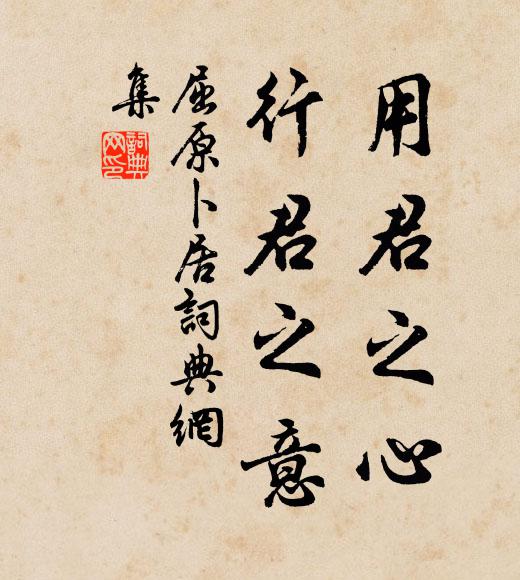 用君之心
行君之意
屈原卜居詞典網
集
詞典
网印